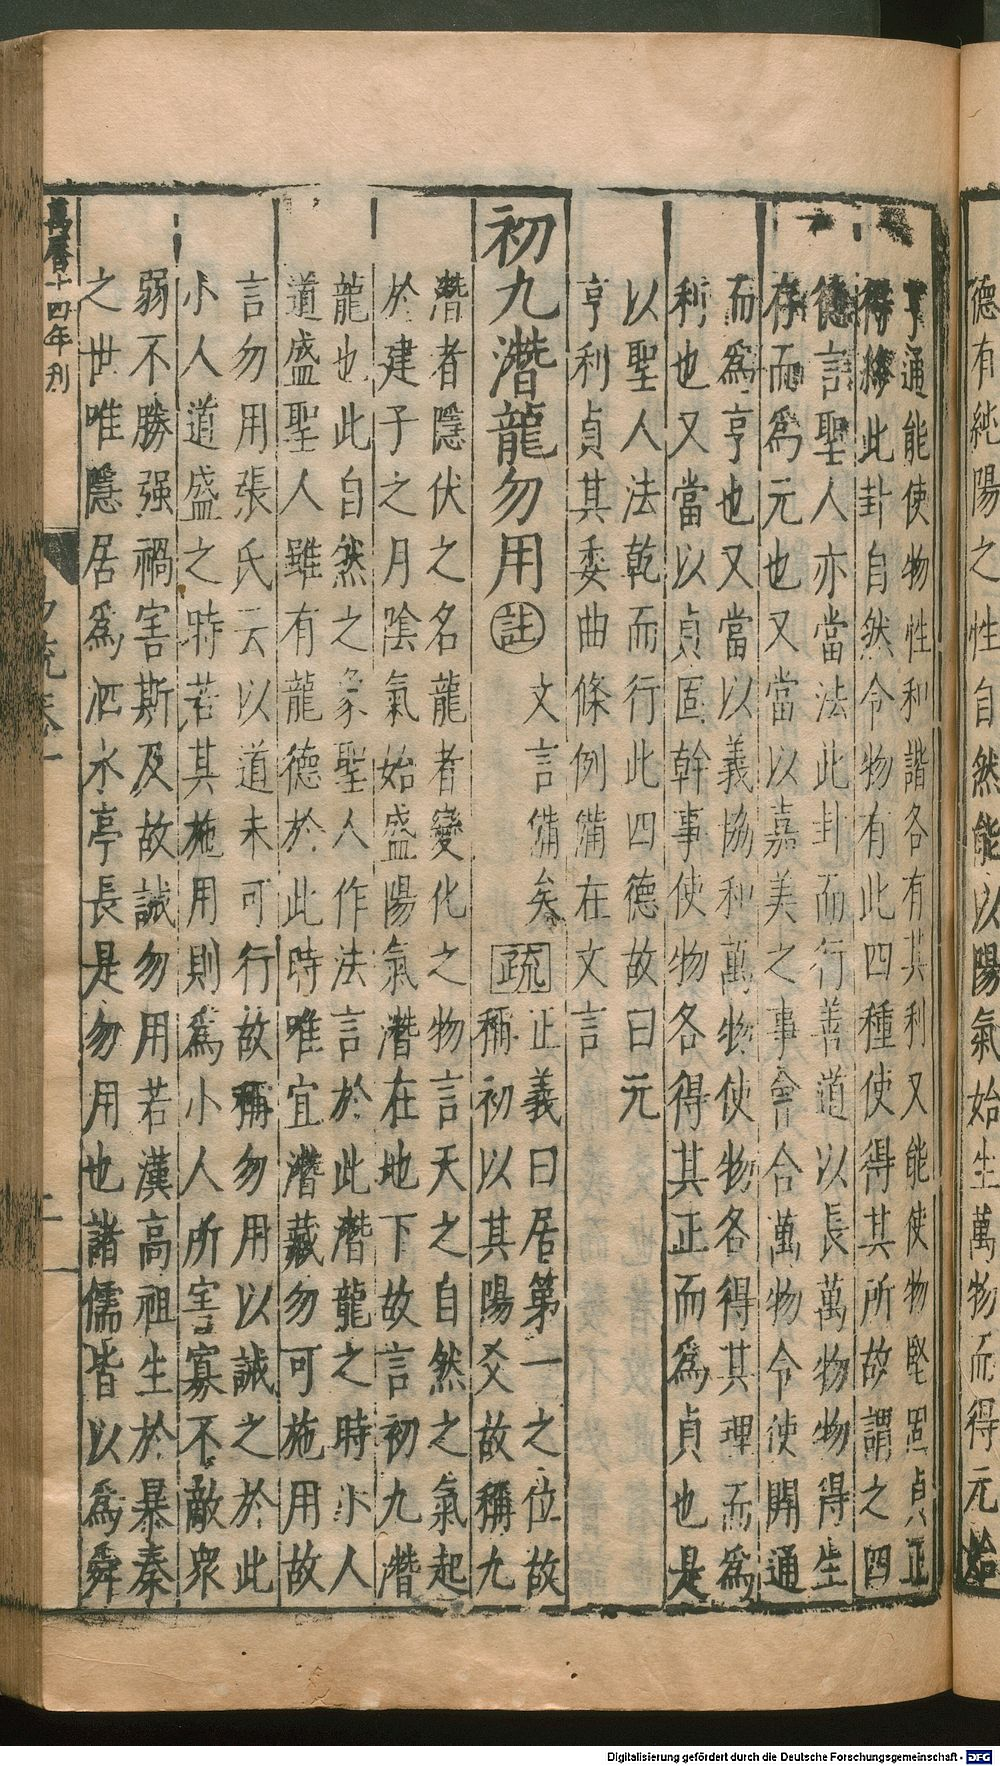 德有純陽之性自然能以陽氣始生萬物而得元始
亨通能使物性和諧各有其利又能使物堅固貞正
得終此卦自然令物有此四種使得其所故謂之四
德言聖人亦當法此卦而行善道以長萬物物得生
存而爲元也又當以嘉美之事會合萬物令使開通
而爲亨也又當以義協和萬物使物各得其理而爲
利也又當以貞固幹事使物各得其正而爲貞也是
以聖人法乾而行此四德故曰元
亨利貞其委曲條例備在文言
初九潛龍勿用註
文言備矣
疏
正義曰居第一之位故
稱初以其陽爻故稱九
潛者隱伏之名龍者變化之物言天之自然之氣起
於建子之月陰氣始盛陽氣潛在地下故言初九潛
龍也此自然之象聖人作法言於此潛龍之時小人
道盛聖人雖有龍德於此時唯宜潛藏勿可施用故
言勿用張氏云以道未可行故稱勿用以誡之於此
小人道盛之時若其施用則爲小人所害寡不敵衆
弱不勝强禍害斯及故誡勿用若漢高祖生於暴秦
之世唯隱居爲泗水亭長是勿用也諸儒皆以爲舜
萬曆十四年刊
Digitalisierung gefördert durch die Deutsche Forschungsgemeinschaft - DFG